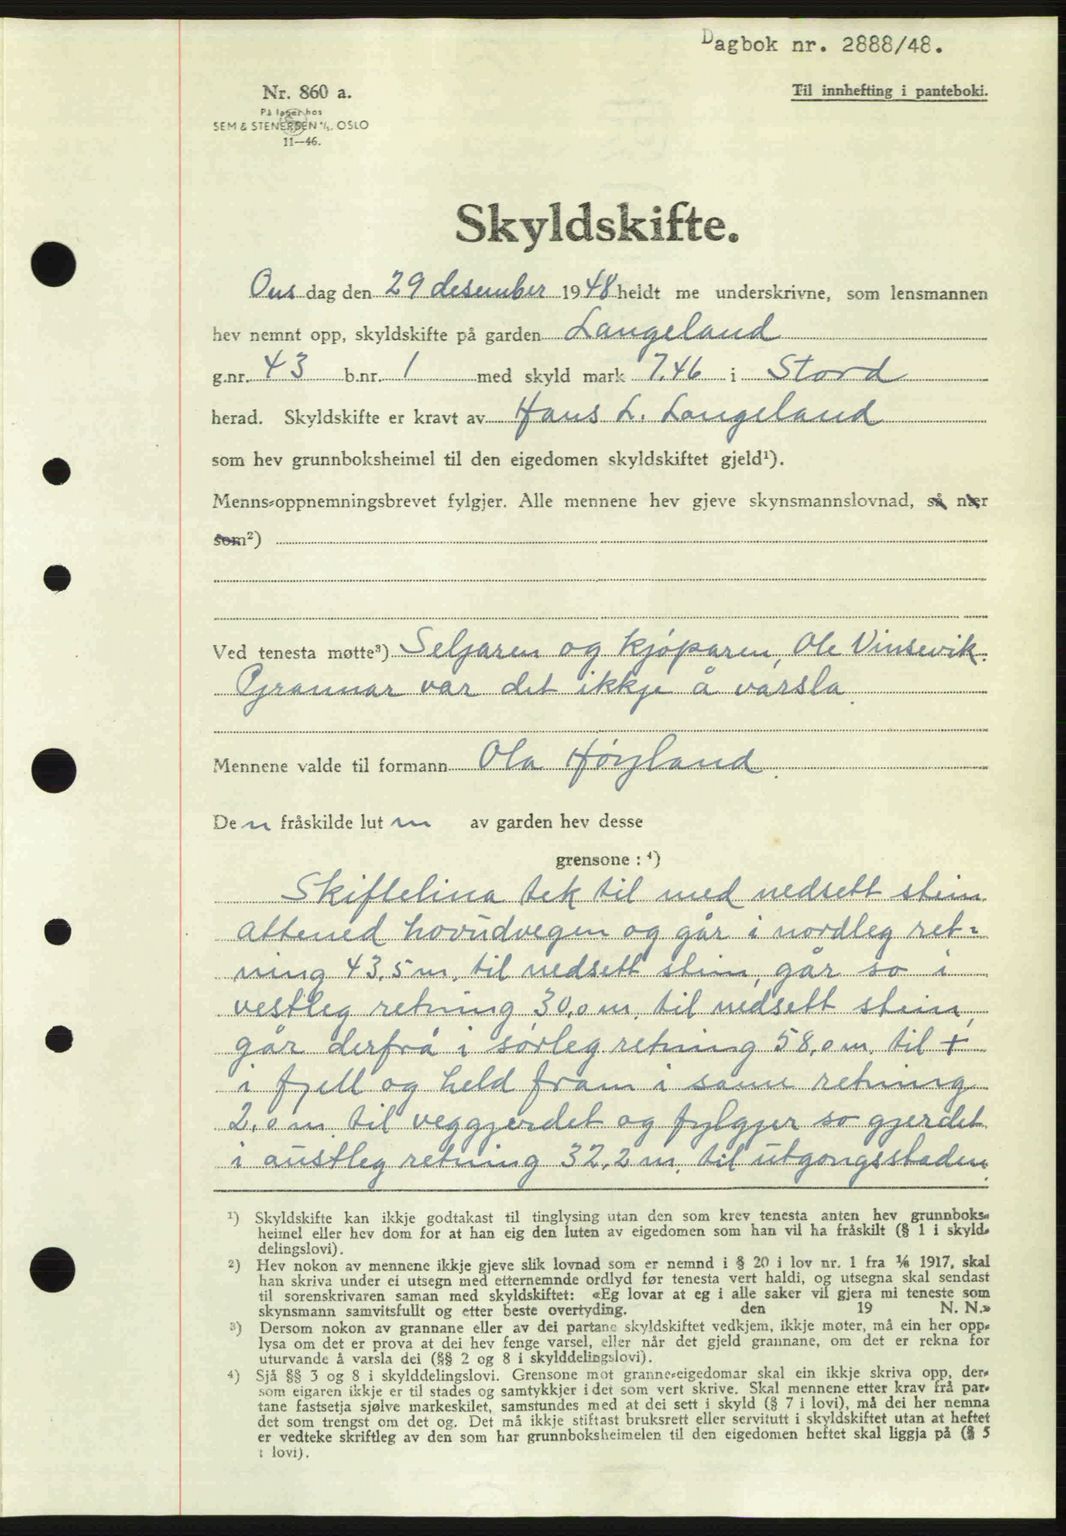 Dagbok nr. 2888/48.
Nr. 860 a.
På lager hos
SEM & STENERSEN A/S, OSLO
11—46.
Til innhefting i panteboki.
Skyldskifte.
Ons dag den 29 desember 1948 heldt me underskrivne, som lensmannen
hev nemnt opp, skyldskifte på garden Langeland
g.nr. 43 b.nr. 1 med skyld mark 7.46 i Stord
herad. Skyldskifte er kravt av Hans L. Langeland
som hev grunnboksheimel til den eigedomen skyldskiftet gjeld¹).
Menns-oppnemningsbrevet fylgjer. Alle mennene hev gjeve skynsmannslovnad, så nær
som²)
Ved tenesta møtte³) Seljaren og kjøparen, Ole Vinsevik.
Grannar var det ikkje å varsla.
Mennene valde til formann Ola Høyland.
De n fråskilde lut en av garden hev desse
grensone : ⁴)
Skiftelina tek til med nedsett stein
attmed hovudvegen og går i nordleg ret-
ning 43,5 m. til nedsett stein, går so i
vestleg retning 30,0 m. til nedsett stein,
går derfrå i sørleg retning 58,0 m. til +
i fjell og held fram i same retning
2,0 m. til veggjerdet og fylgjer so gjerdet
i austleg retning 32,2 m. til utgongsstaden.
¹) Skyldskifte kan ikkje godtakast til tinglysing utan den som krev tenesta anten hev grunnboks-
heimel eller hev dom for at han eig den luten av eigedomen som han vil ha fråskilt (§ 1 i skyld-
delingslovi).
²) Hev nokon av mennene ikkje gjeve slik lovnad som er nemnd i § 20 i lov nr. 1 fra 1/6 1917, skal
han skriva under ei utsegn med etternemnde ordlyd før tenesta vert haldi, og utsegna skal sendast
til sorenskrivaren saman med skyldskiftet: «Eg lovar at eg i alle saker vil gjera mi teneste som
skynsmann samvitsfullt og etter beste overtyding. den 19 N. N.»
³) Dersom nokon av grannane eller av dei partane skyldskiftet vedkjem, ikkje møter, må ein her opp-
lysa om det er prova at dei hev fenge varsel, eller når det gjeld grannane, om det er rekna for
uturvande å varsla dei (§§ 2 og 8 i skylddelingslovi).
⁴) Sjå §§ 3 og 8 i skylddelingslovi. Grensone mot granne-eigedomar skal ein ikkje skriva opp, der-
som eigaren ikkje er til stades og samtykkjer i det som vert skrive. Skal mennene etter krav frå par-
tane fastsetja sjølve markeskilet, samstundes med at dei sett i skyld (§ 7 i lovi), må dei her nemna
det som trengst om det og. Det må ikkje stiftast bruksrett eller servitutt i skyldskiftet utan at heftet
er vedteke skriftleg av den som har grunnboksheimelen til den eigedomen heftet skal liggja på (§ 5
i lovi).